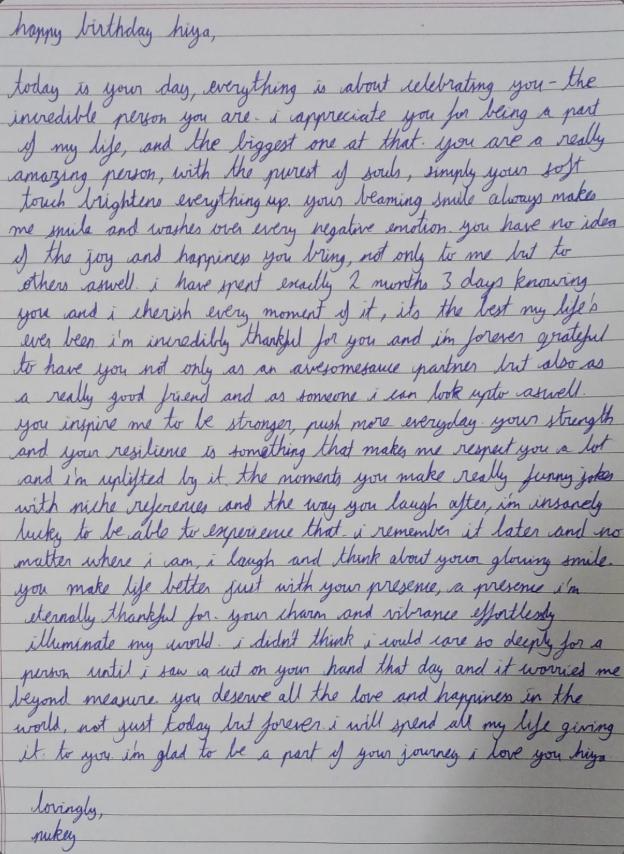 happy birthday hiya,
today is your day, everything is about celebrating you - the
incredible person you are. i appreciate you for being a part
of my life, and the biggest one at that. you are a really
amazing person, with the purest of souls, simply your soft
touch brightens everything up. your beaming smile always makes
me smile and washes over every negative emotion. you have no idea
of the joy and happiness you bring, not only to me but to
others aswell. i have spent exactly 2 months 3 days knowing
you and i cherish every moment of it, it's the best my life's
ever been i'm incredibly thankful for you and i'm forever grateful
to have you not only as an awesomesauce partner but also as
a really good friend and as someone i can look upto aswell.
you inspire me to be stronger, push more everyday. your strength
and your resilience is something that makes me respect you a lot
and i'm uplifted by it. the moments you make really funny jokes
with niche references and the way you laugh after, i'm insanely
lucky to be able to experience that. i remember it later and no
matter where i am, i laugh and think about your glowing smile.
you make life better just with your presence, a presence i'm
eternally thankful for. your charm and vibrance effortlessly
illuminate my world. i didn't think i could care so deeply for a
person until i saw a cut on your hand that day and it worried me
beyond measure. you deserve all the love and happiness in the
world, not just today but forever. i will spend all my life giving
it. to you. i'm glad to be a part of your journey i love you hiya
lovingly,
nukey